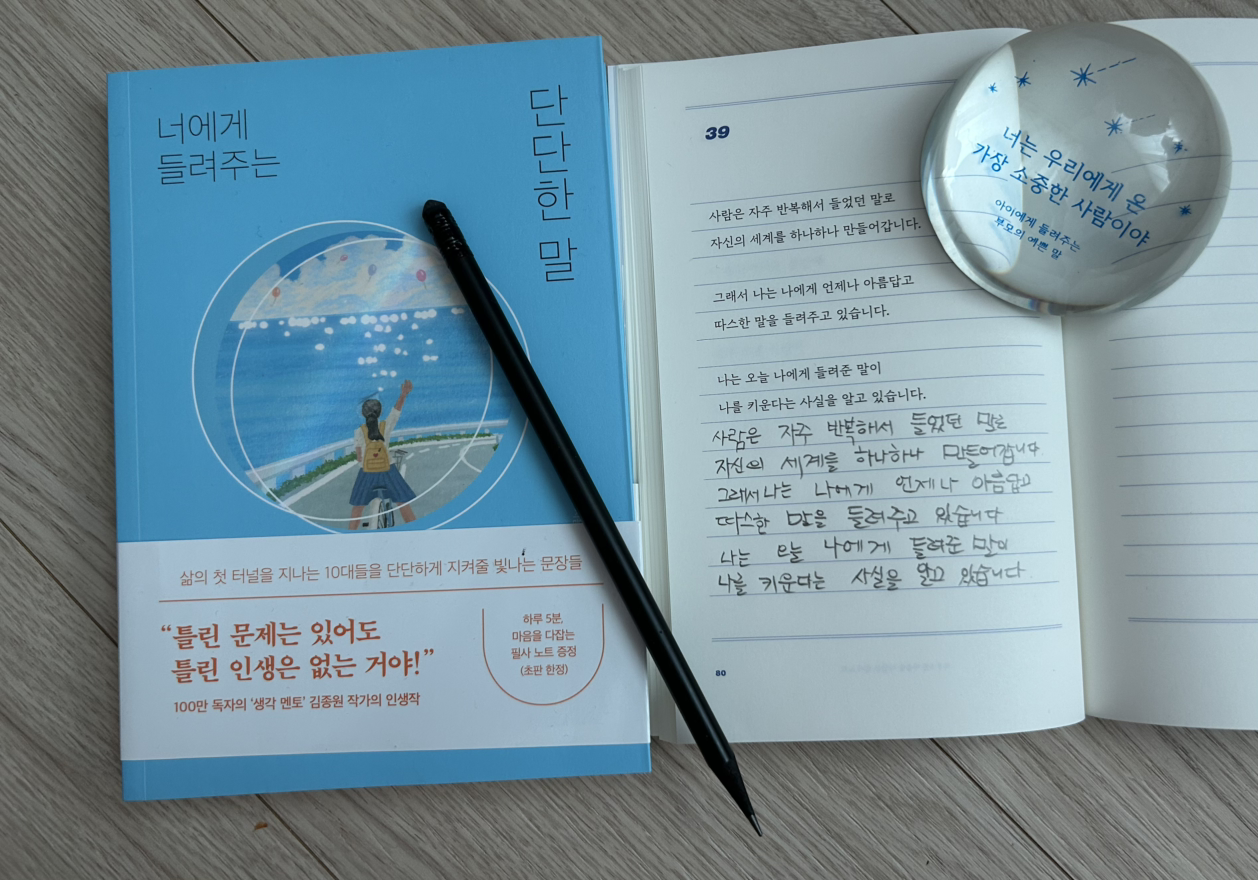 너에게
들려주는
단단한 말
삶의 첫 터널을 지나는 10대들을 단단하게 지켜줄 빛나는 문장들
“틀린 문제는 있어도
틀린 인생은 없는 거야!”
100만 독자의 ‘생각 멘토’ 김종원 작가의 인생작
하루 5분,
마음을 다잡는
필사 노트 증정
(초판 한정)
39
사람은 자주 반복해서 들었던 말로
자신의 세계를 하나하나 만들어갑니다.
그래서 나는 나에게 언제나 아름답고
따스한 말을 들려주고 있습니다.
나는 오늘 나에게 들려준 말이
나를 키운다는 사실을 알고 있습니다.
사람은 자주 반복해서 들었던 말로
자신의 세계를 하나하나 만들어갑니다.
그래서 나는 나에게 언제나 아름답고
따스한 말을 들려주고 있습니다
나는 오늘 나에게 들려준 말이
나를 키운다는 사실을 알고 있습니다.
80
너는 우리에게 온
가장 소중한 사람이야
아이에게 들려주는
부모의 예쁜 말